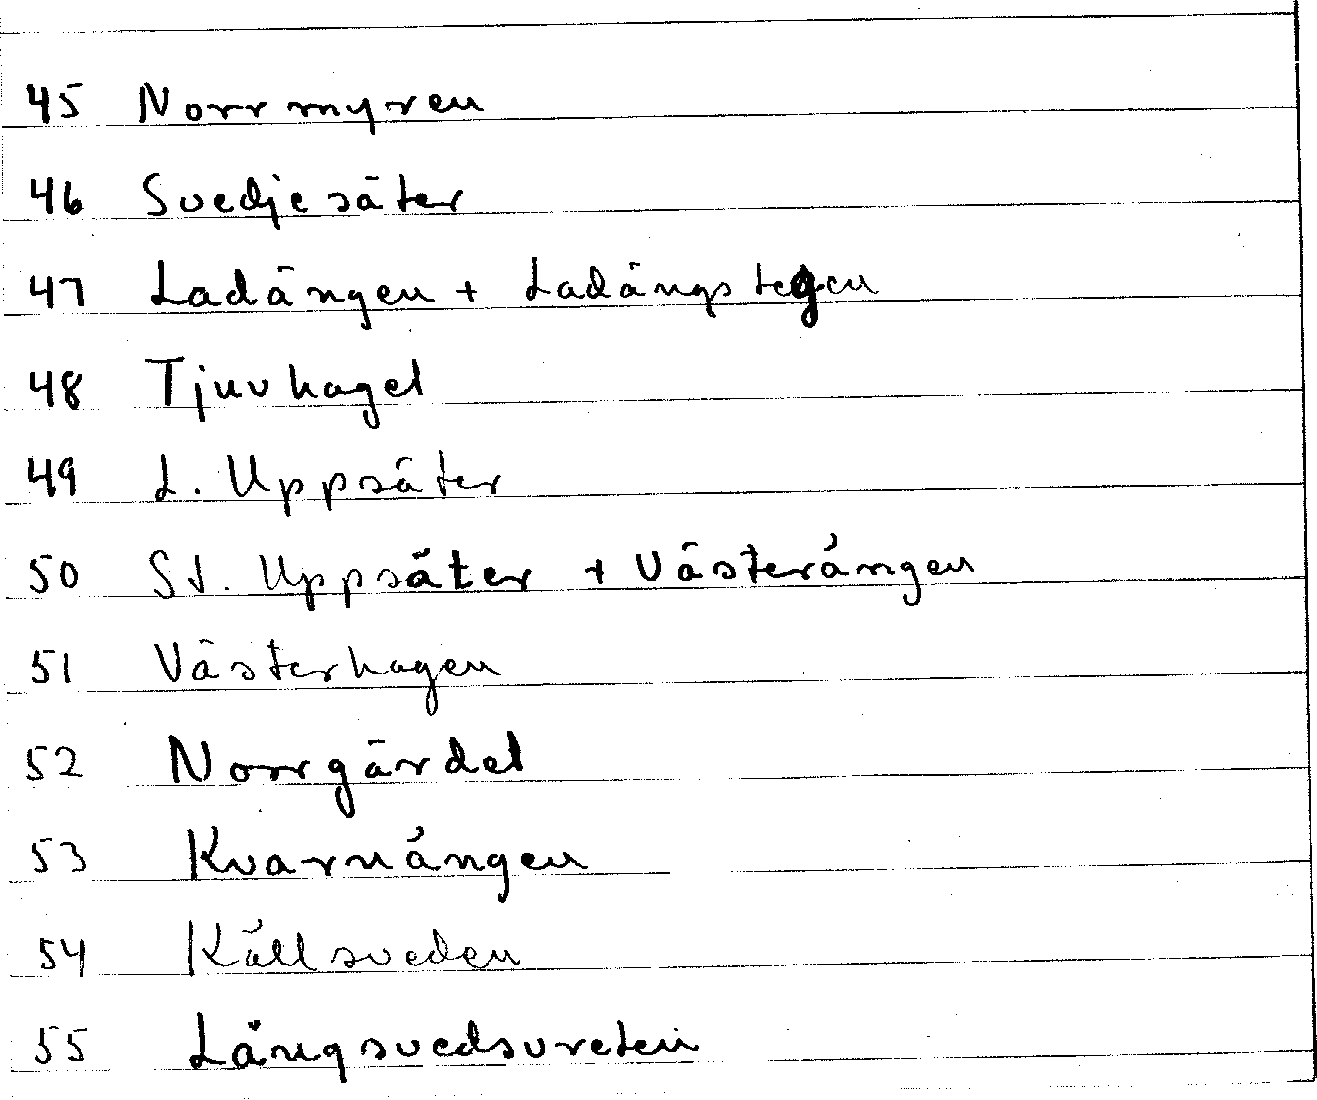 45 Norrmyren
46 Svedjesäter
47 Ladängen + Ladängstegen
48 Tjuvhaget
49 L. Uppsäter
50 St. Uppsäter + Västerängen
51 Västerhagen
52 Norrgärdet
53 Kvarnängen
54 Källsveden
55 Långsvedsvreten